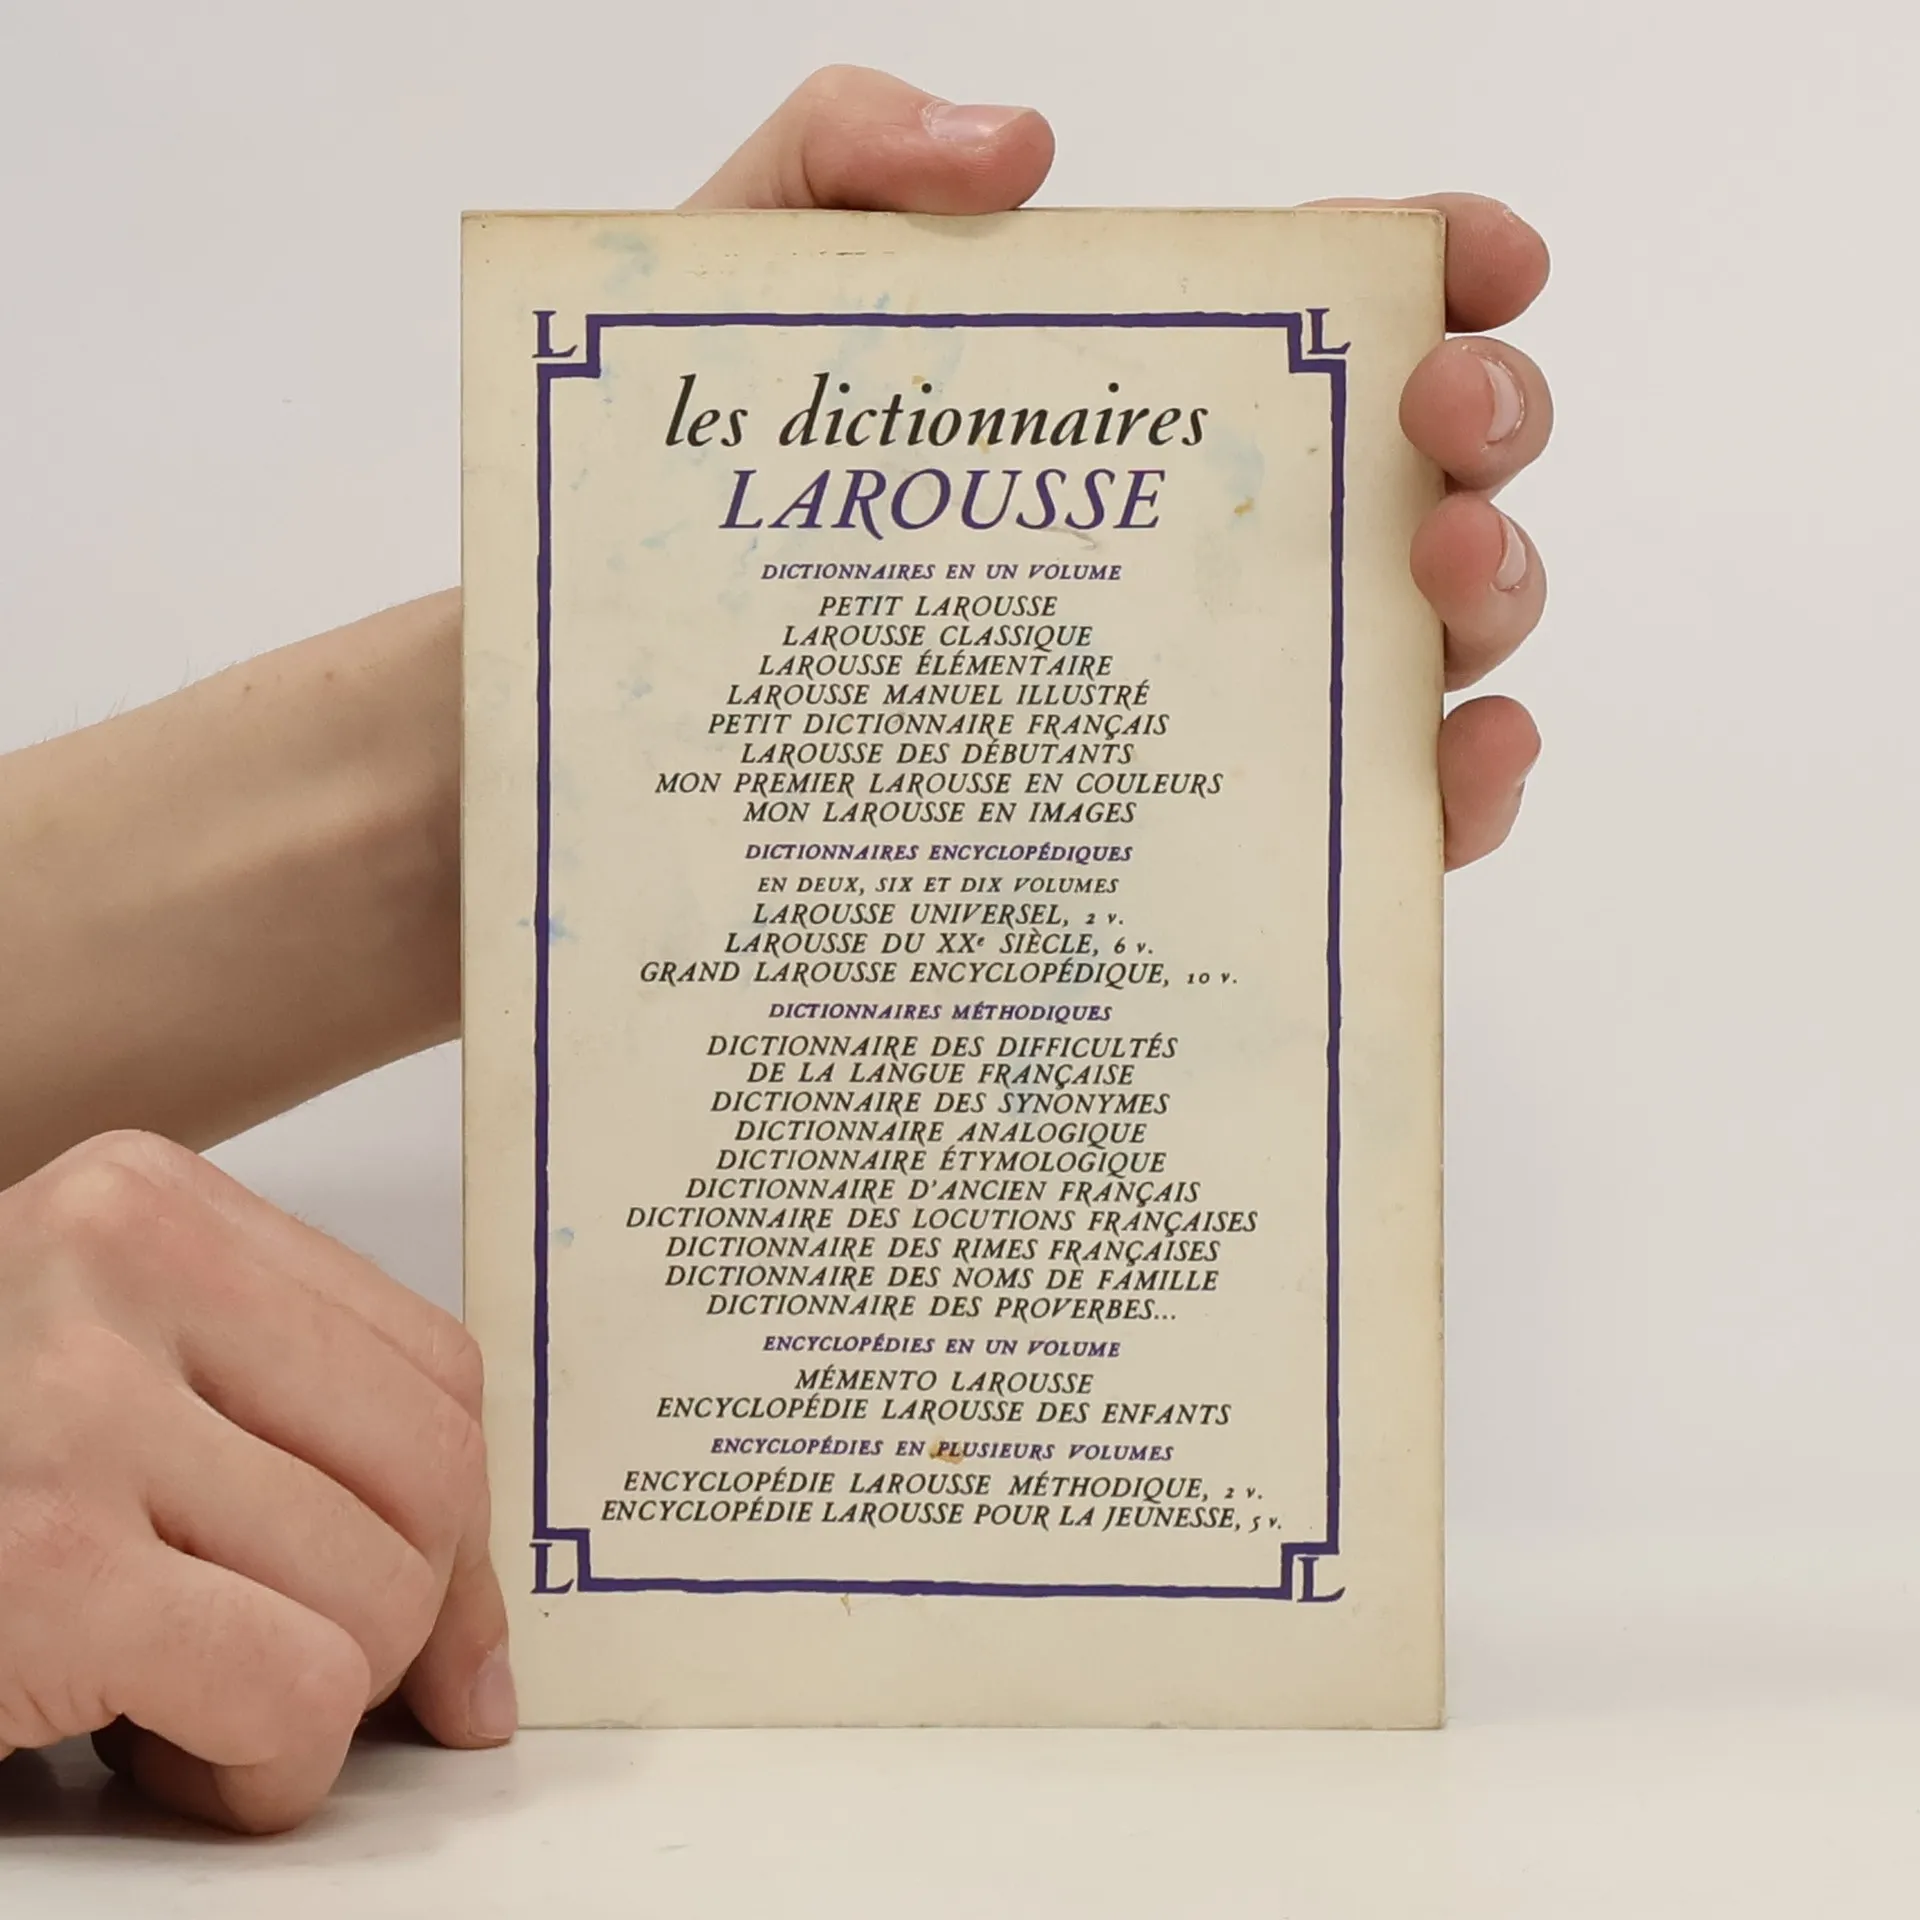 L L
les dictionnaires
LAROUSSE
DICTIONNAIRES EN UN VOLUME
PETIT LAROUSSE
LAROUSSE CLASSIQUE
LAROUSSE ÉLÉMENTAIRE
LAROUSSE MANUEL ILLUSTRÉ
PETIT DICTIONNAIRE FRANÇAIS
LAROUSSE DES DÉBUTANTS
MON PREMIER LAROUSSE EN COULEURS
MON LAROUSSE EN IMAGES
DICTIONNAIRES ENCYCLOPÉDIQUES
EN DEUX, SIX ET DIX VOLUMES
LAROUSSE UNIVERSEL, 2 v.
LAROUSSE DU XXe SIÈCLE, 6 v.
GRAND LAROUSSE ENCYCLOPÉDIQUE, 10 v.
DICTIONNAIRES MÉTHODIQUES
DICTIONNAIRE DES DIFFICULTÉS
DE LA LANGUE FRANÇAISE
DICTIONNAIRE DES SYNONYMES
DICTIONNAIRE ANALOGIQUE
DICTIONNAIRE ÉTYMOLOGIQUE
DICTIONNAIRE D'ANCIEN FRANÇAIS
DICTIONNAIRE DES LOCUTIONS FRANÇAISES
DICTIONNAIRE DES RIMES FRANÇAISES
DICTIONNAIRE DES NOMS DE FAMILLE
DICTIONNAIRE DES PROVERBES...
ENCYCLOPÉDIES EN UN VOLUME
MÉMENTO LAROUSSE
ENCYCLOPÉDIE LAROUSSE DES ENFANTS
ENCYCLOPÉDIES EN PLUSIEURS VOLUMES
ENCYCLOPÉDIE LAROUSSE MÉTHODIQUE, 2 v.
ENCYCLOPÉDIE LAROUSSE POUR LA JEUNESSE, 5 v.
L L